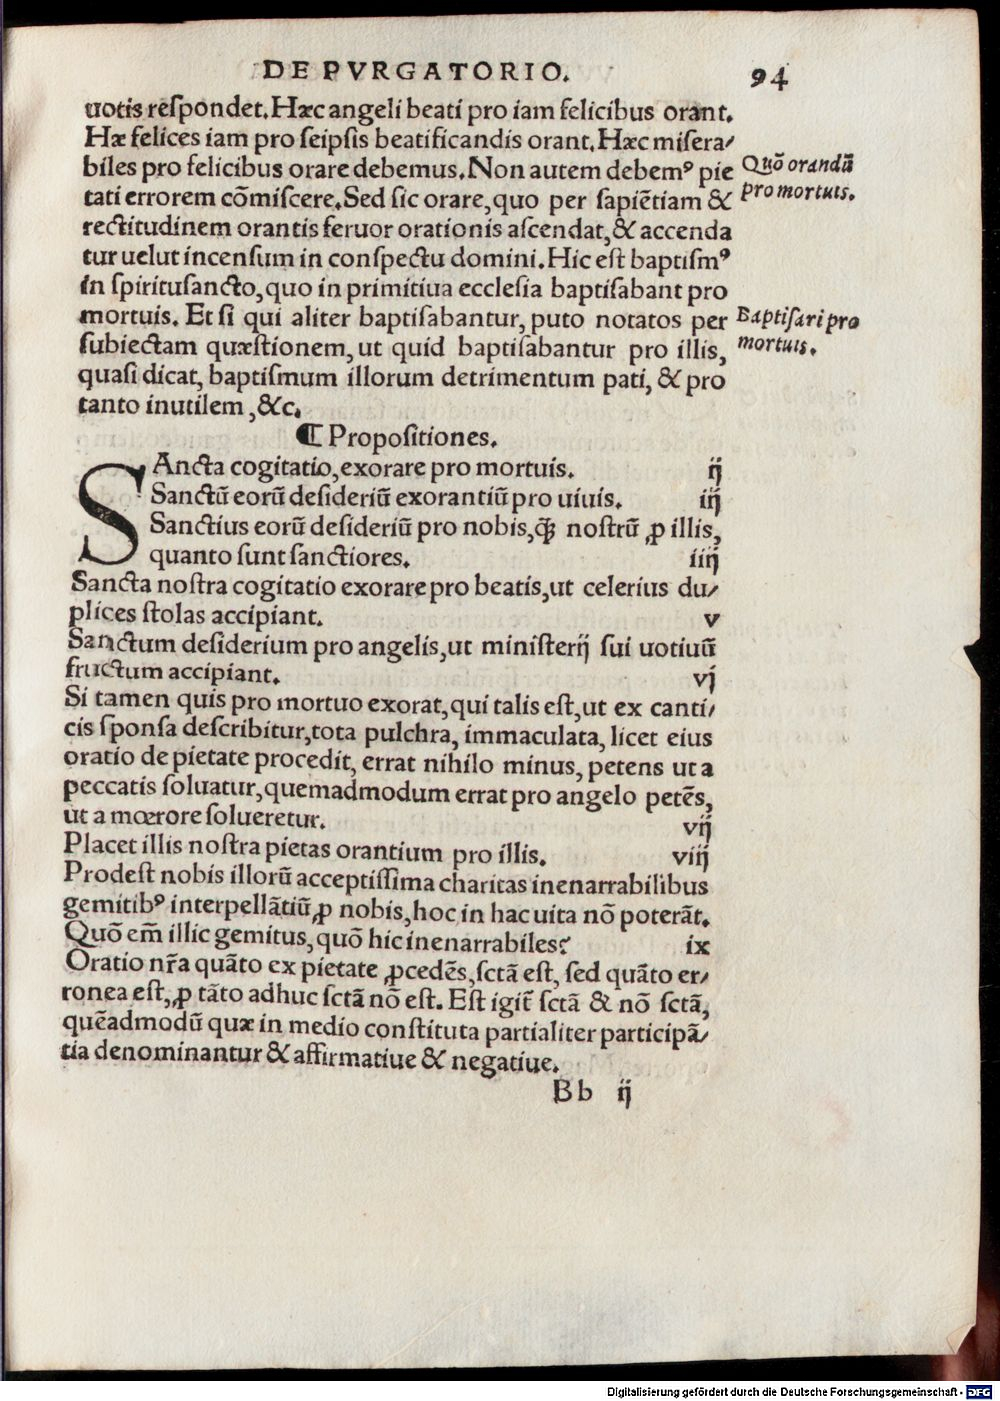 DE PVRGATORIO.
94
uotis reſpondet. Hæc angeli beati pro iam felicibus orant.
Hæ felices iam pro ſeipſis beatificandis orant. Hæc miſera/
biles pro felicibus orare debemus. Non autem debemꝰ pie
tati errorem cõmiſcere. Sed ſic orare, quo per ſapiẽtiam &
rectitudinem orantis feruor orationis aſcendat, & accenda
tur uelut incenſum in conſpectu domini. Hic eſt baptiſmꝰ
in ſpirituſancto, quo in primitiua eccleſia baptiſabant pro
mortuis. Et ſi qui aliter baptiſabantur, puto notatos per
ſubiectam quæſtionem, ut quid baptiſabantur pro illis,
quaſi dicat, baptiſmum illorum detrimentum pati, & pro
tanto inutilem, &c.
Quõ orandũ
pro mortuis.
Baptiſari pro
mortuis.
¶ Propoſitiones.
SAncta cogitatio, exorare pro mortuis. ij
Sanctũ eorũ deſideriũ exorantiũ pro uiuis. iij
Sanctius eorũ deſideriũ pro nobis, ꝙ̃ noſtrũ ꝓ illis,
quanto ſunt ſanctiores. iiij
Sancta noſtra cogitatio exorare pro beatis, ut celerius du/
plices ſtolas accipiant. v
Sanctum deſiderium pro angelis, ut miniſterij ſui uotiuũ
fructum accipiant. vj
Si tamen quis pro mortuo exorat, qui talis eſt, ut ex canti/
cis ſponſa deſcribitur, tota pulchra, immaculata, licet eius
oratio de pietate procedit, errat nihilo minus, petens ut a
peccatis ſoluatur, quemadmodum errat pro angelo petẽs,
ut a mœrore ſolueretur. vij
Placet illis noſtra pietas orantium pro illis. viij
Prodeſt nobis illorũ acceptiſſima charitas inenarrabilibus
gemitibꝰ interpellãtiũ ꝓ nobis, hoc in hac uita nõ poterãt.
Quõ em̃ illic gemitus, quõ hic inenarrabiles? ix
Oratio nr̃a quãto ex pietate ꝓcedẽs, ſctã eſt, ſed quãto er/
ronea eſt, ꝓ tãto adhuc ſctã nõ eſt. Eſt igit̃ ſctã & nõ ſctã,
quẽadmodũ quæ in medio conſtituta partialiter participã/
tia denominantur & affirmatiue & negatiue.
Bb ij
Digitalisierung gefördert durch die Deutsche Forschungsgemeinschaft - DFG